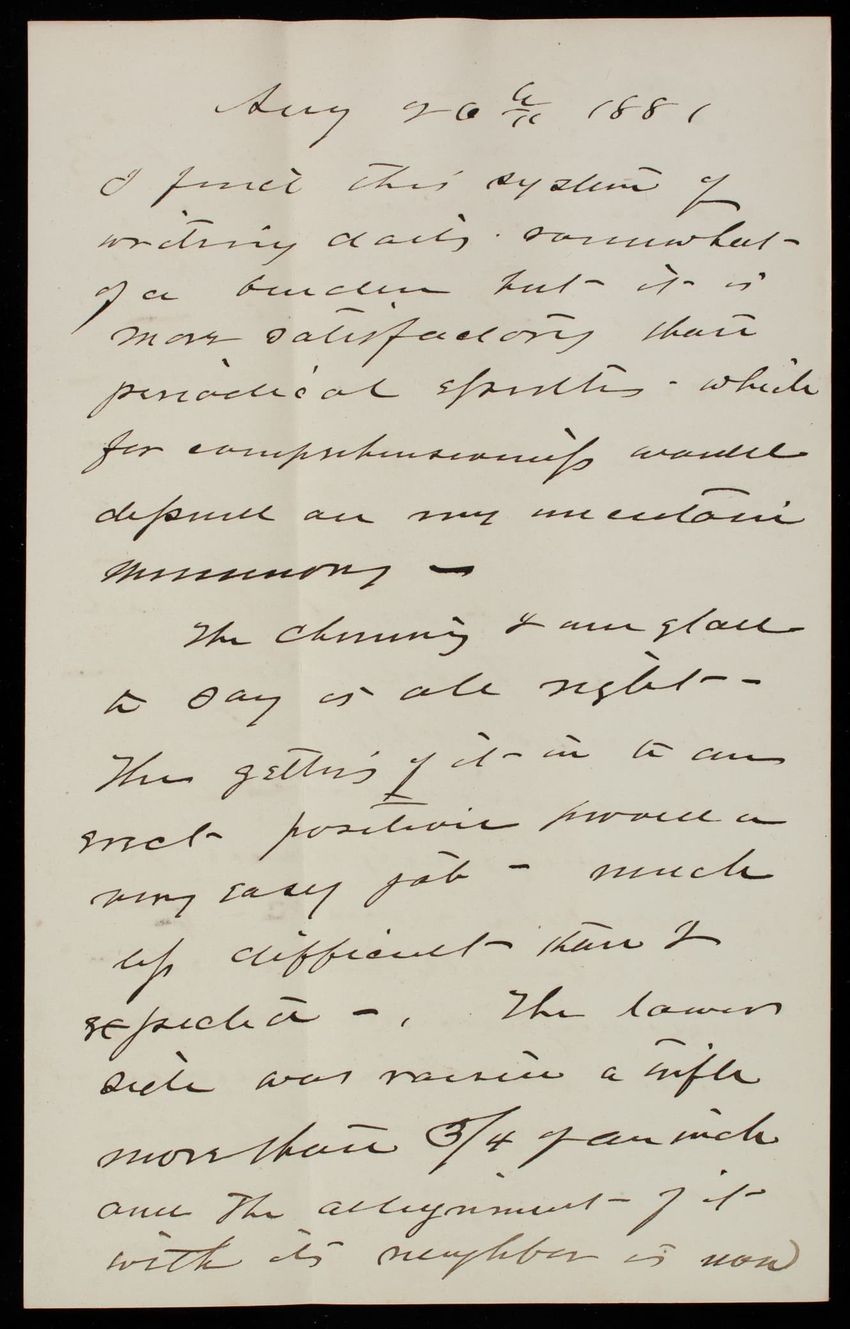 Aug 26th 1881
I find this system of
writing daily somewhat
of a burden but it is
more satisfactory than
periodical epistles - which
for comprehensiveness would
depend on my uncertain
memory -
The chimney I am glad
to say is all right -
The getting of it in to an
erect position proved a
very easy job - much
less difficult than I
expected -. The lower
side was raised a trifle
more than 3/4 of an inch
and the allignment of it
with its neighbor is now